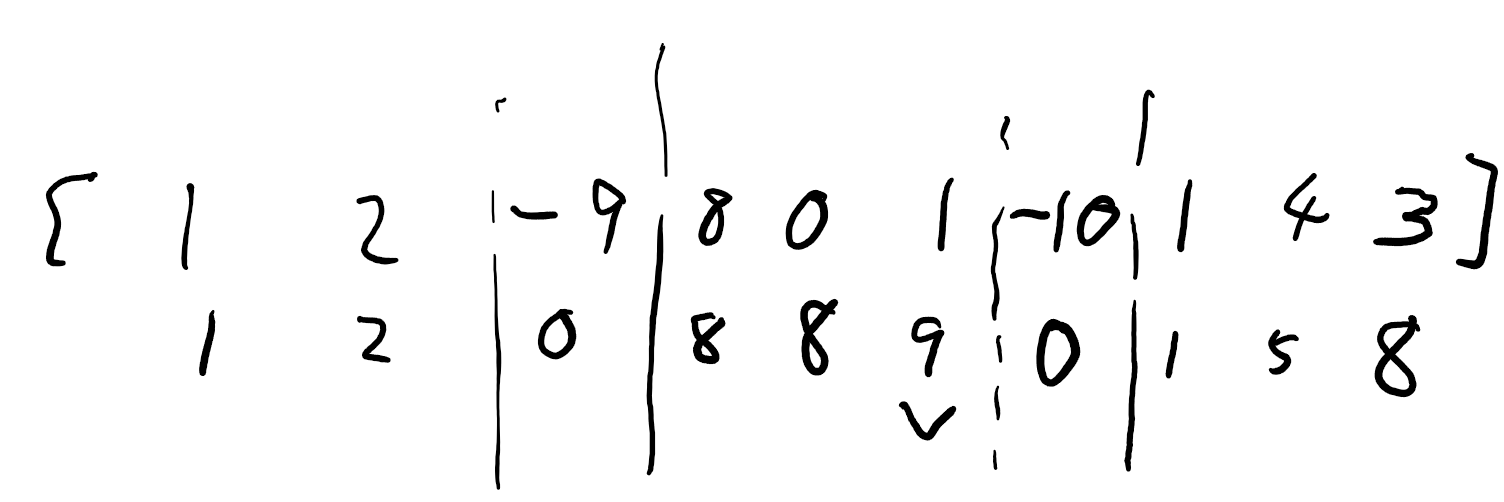 [ 1 2 -9 8 0 1 -10 1 4 3 ]
1 2 0 8 8 9 0 1 5 8